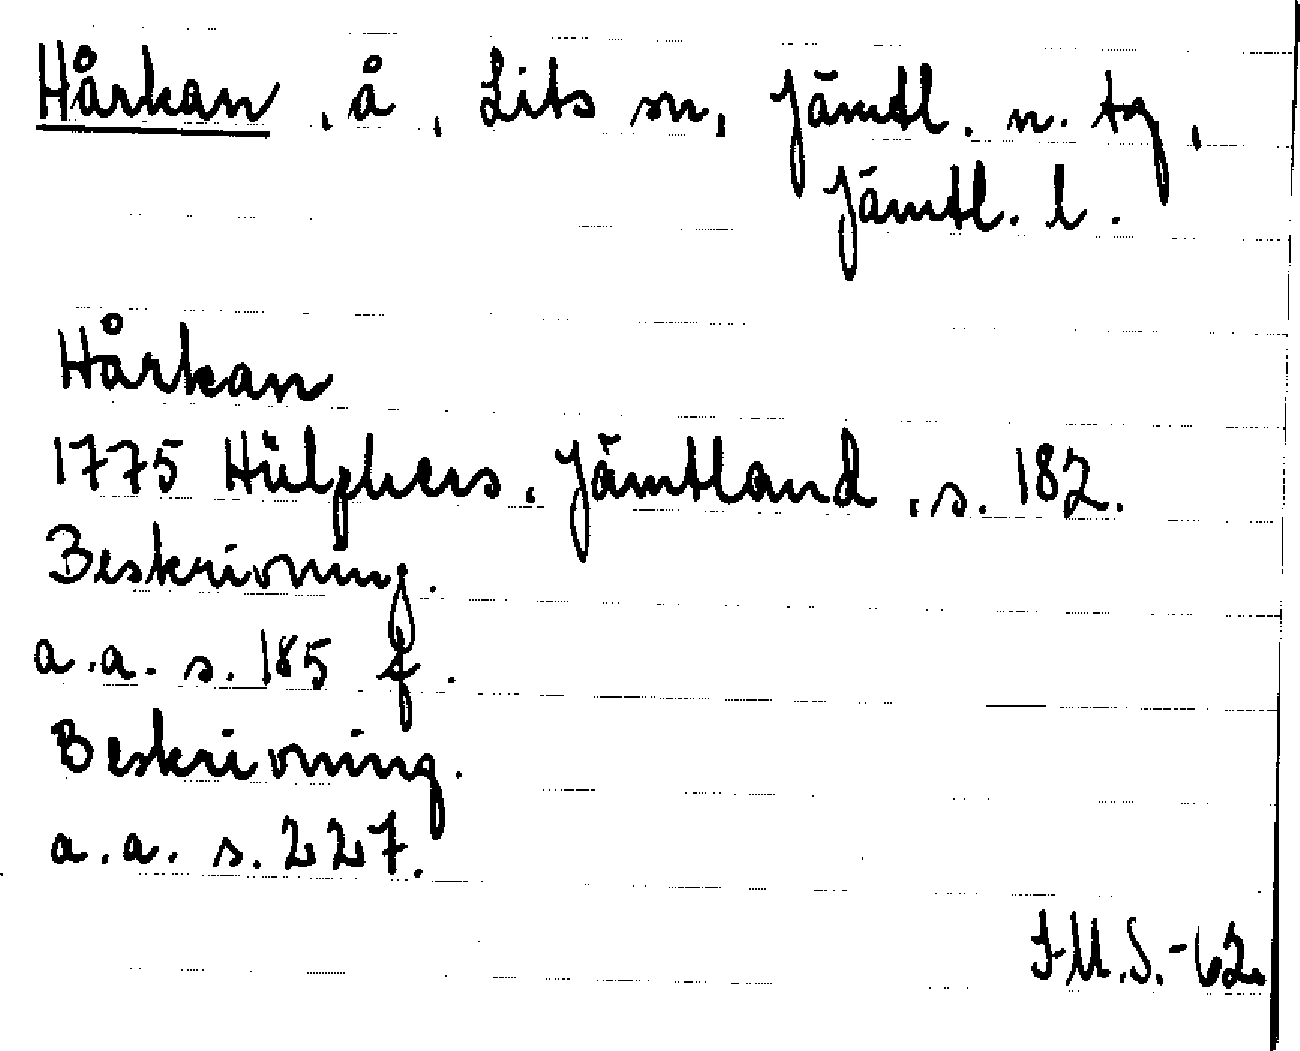 Hårkan, å, Lits sn, Jämtl. n. tg,
Jämtl. l.
Hårkan
1775 Hülphers. Jämtland, s. 182.
Beskrivning.
a.a. s. 185 f.
Beskrivning.
a.a. s. 227.
I.M.S.-62.